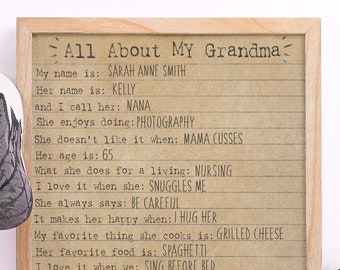 All About MY Grandma
My name is: SARAH ANNE SMITH
Her name is: KELLY
and I call her: NANA
She enjoys doing: PHOTOGRAPHY
She doesn't like it when: MAMA CUSSES
Her age is: 65
What she does for a living: NURSING
I love it when she: SNUGGLES ME
She always says: BE CAREFUL
It makes her happy when: I HUG HER
My favorite thing she cooks is: GRILLED CHEESE
Her favorite food is: SPAGHETTI
I love it when we: SING BEFORE BED